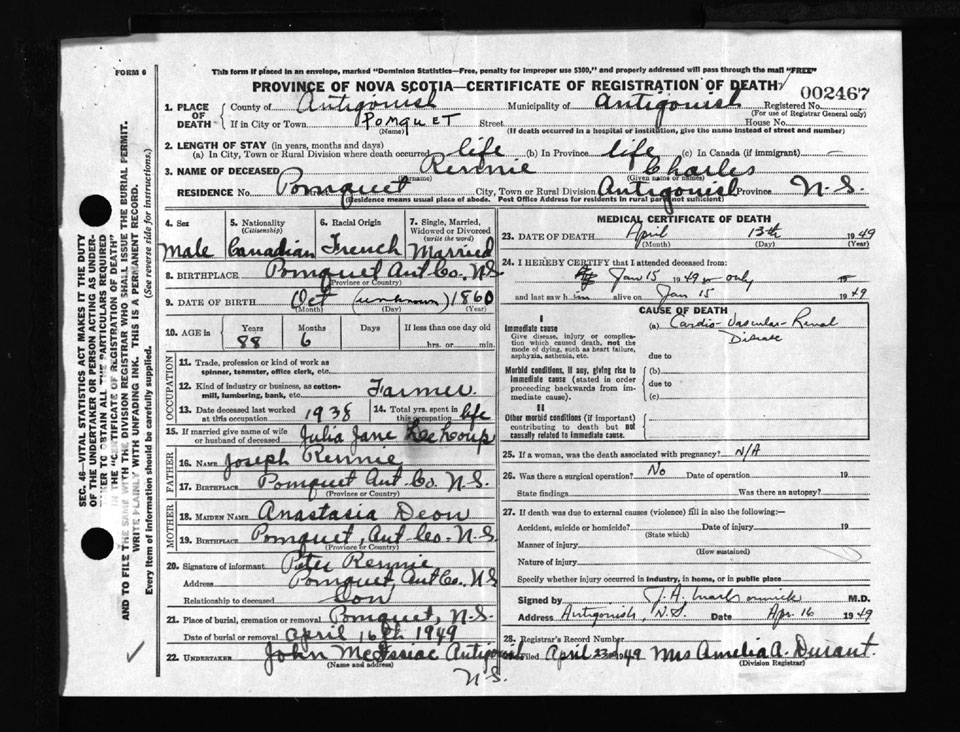 FORM 6
This form if placed in an envelope, marked "Dominion Statistics—Free, penalty for improper use $300," and properly addressed will pass through the mail "FREE"
PROVINCE OF NOVA SCOTIA—CERTIFICATE OF REGISTRATION OF DEATH
002467
1. PLACE OF DEATH County of Antigonish Municipality of Antigonish Registered No.
(For use of Registrar General only)
If in City or Town Pomquet Street House No.
(Name) (If death occurred in a hospital or institution, give the name instead of street and number)
2. LENGTH OF STAY (in years, months and days)
(a) In City, Town or Rural Division where death occurred life (b) In Province life (c) In Canada (if immigrant) —
3. NAME OF DECEASED Rennie Charles
(Surname) (Given name or names)
RESIDENCE No. Pomquet City, Town or Rural Division Antigonish Province N.S.
(Residence means usual place of abode. Post Office Address for residents in rural parts not sufficient)
4. Sex 5. Nationality (Citizenship) 6. Racial Origin 7. Single, Married, Widowed or Divorced (write the word)
Male Canadian French Married
8. BIRTHPLACE Pomquet Ant Co. N.S
(Province or Country)
9. DATE OF BIRTH Oct (unknown) 1860
(Month) (Day) (Year)
10. AGE in Years Months Days If less than one day old
88 6 hrs. or min.
OCCUPATION
11. Trade, profession or kind of work as spinner, teamster, office clerk, etc.
12. Kind of industry or business, as cotton-mill, lumbering, bank, etc. Farmer
13. Date deceased last worked at this occupation 1938 14. Total yrs. spent in this occupation life
15. If married give name of wife or husband of deceased Julia Jane
FATHER
16. NAME Joseph Rennie
17. BIRTHPLACE Pomquet Ant. Co. N.S.
(Province or Country)
MOTHER
18. MAIDEN NAME Anastasia Deon
19. BIRTHPLACE Pomquet, Ant Co. N.S
(Province or Country)
20. Signature of informant Peter Rennie
Address Pomquet Ant Co. N.S
Relationship to deceased Son
21. Place of burial, cremation or removal Pomquet, N.S.
Date of burial or removal April 16th 1949
22. UNDERTAKER John Antigonish
(Name and address) N.S.
MEDICAL CERTIFICATE OF DEATH
23. DATE OF DEATH April 13th 1949
(Month) (Day) (Year)
24. I HEREBY CERTIFY that I attended deceased from:
Jan 15 1949 only 19
and last saw him alive on Jan 15 1949
CAUSE OF DEATH
I
Immediate cause (a) Cardio-Vascular-Renal Disease
Give disease, injury or complication which caused death, not the mode of dying, such as heart failure, asphyxia, asthenia, etc.
due to
Morbid conditions, if any, giving rise to immediate cause (stated in order proceeding backwards from immediate cause).
(b)
due to
(c)
II
Other morbid conditions (if important) contributing to death but not causally related to immediate cause.
25. If a woman, was the death associated with pregnancy? N/A
26. Was there a surgical operation? No Date of operation 19
State findings Was there an autopsy?
27. If death was due to external causes (violence) fill in also the following:—
Accident, suicide or homicide? Date of injury 19
(State which)
Manner of injury
(How sustained)
Nature of injury
Specify whether injury occurred in industry, in home, or in public place
Signed by J. A. M.D.
Address Antigonish, N.S. Date Apr. 16 1949
28. Registrar's Record Number
Filed April 23rd 1949 Mrs Amelia A. Durant.
(Division Registrar)
SEC. 46—VITAL STATISTICS ACT MAKES IT THE DUTY
OF THE UNDERTAKER OR PERSON ACTING AS UNDERTAKER TO OBTAIN ALL THE PARTICULARS REQUIRED
IN THE "CERTIFICATE OF REGISTRATION OF DEATH"
AND TO FILE THE SAME WITH THE DIVISION REGISTRAR WHO SHALL ISSUE THE BURIAL PERMIT.
WRITE PLAINLY WITH UNFADING INK. THIS IS A PERMANENT RECORD.
Every item of information should be carefully supplied. (See reverse side for instructions.)